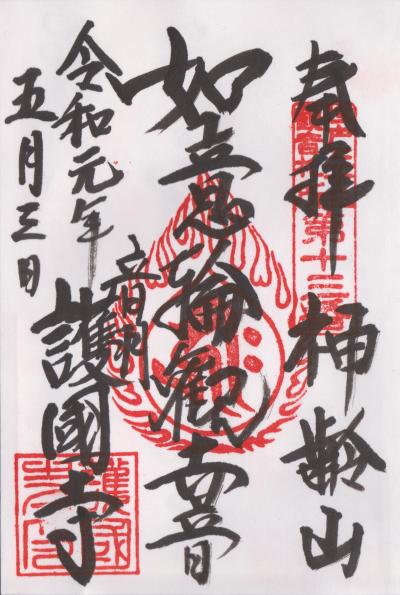 奉拝
神齢山
如意輪観世音
音羽
護國寺
令和元年
五月三日
第十三番
護國寺印